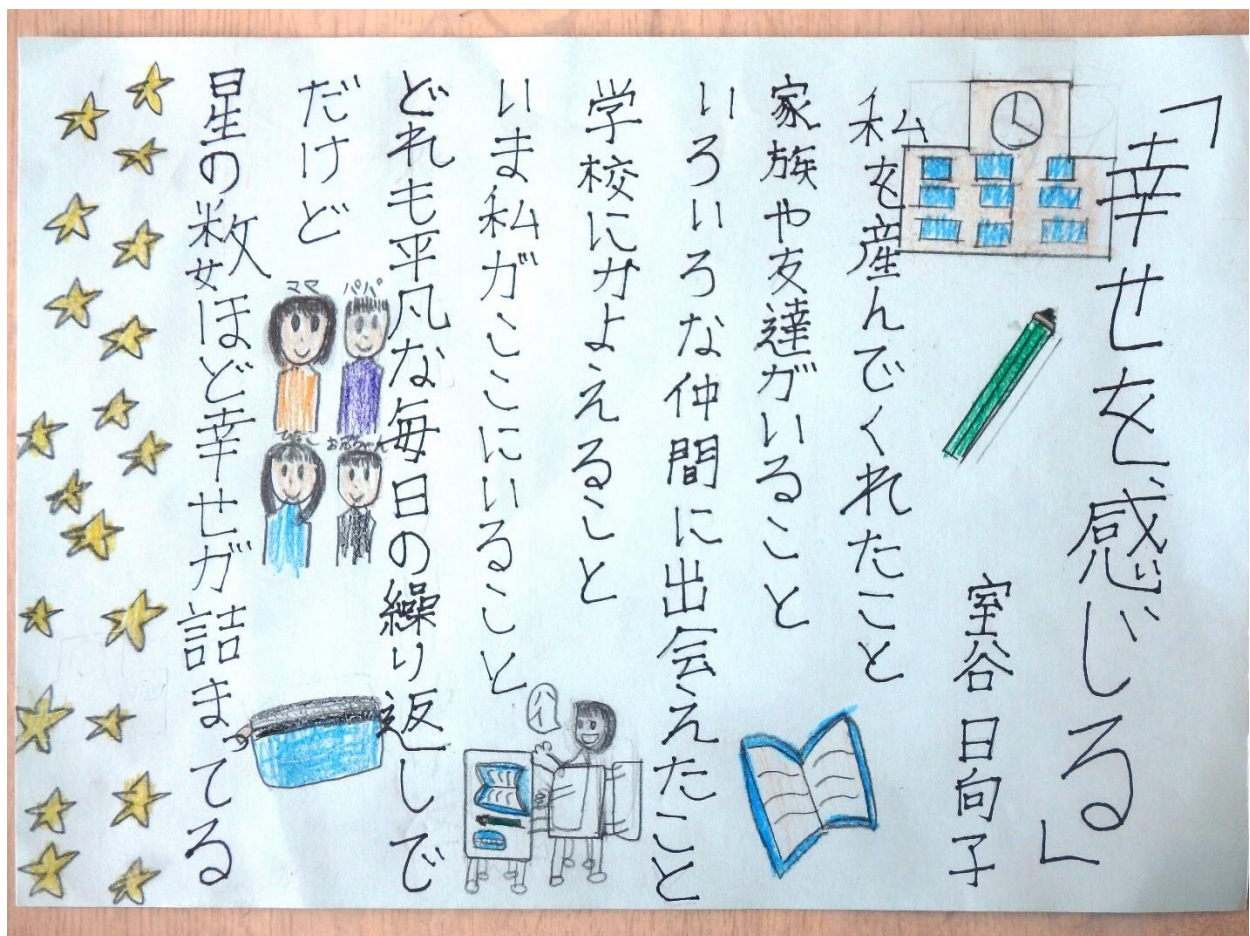 「幸せを感じる」
室谷日向子
私を産んでくれたこと
家族や友達がいること
いろいろな仲間に出会えたこと
学校にかよえること
いま私がここにいること
どれも平凡な毎日の繰り返しで
だけど
星の数ほど幸せが詰まってる
パパ
ママ
お兄ちゃん
ハイ